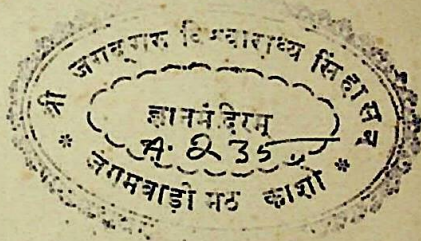 श्री जगद्गुरु विश्वाराध्य सिंहासन
ज्ञानमंदिरम्
A. 235
* जंगमवाड़ी मठ काशी *